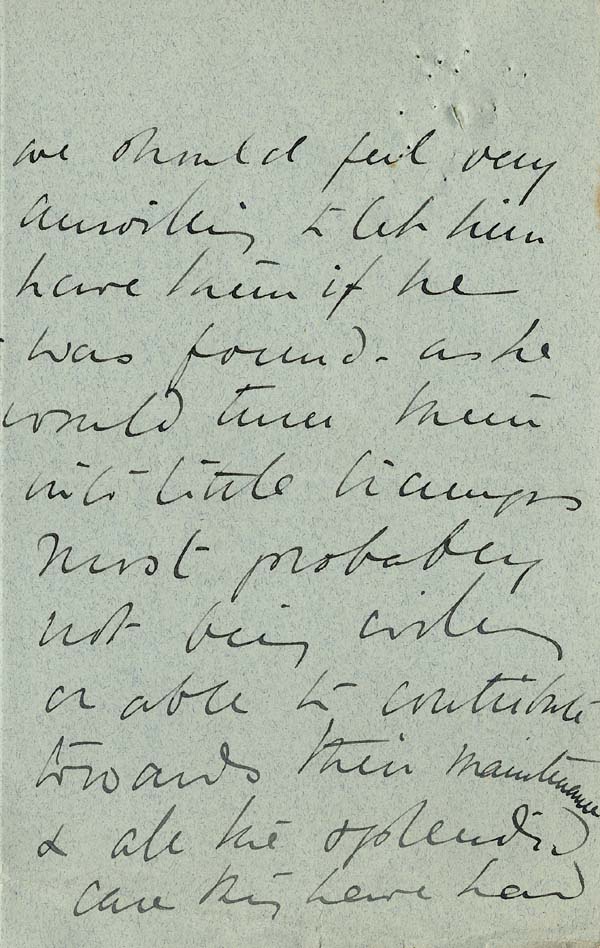 we should feel very
unwilling to let him
have them if he
was found - as he
would turn them
into little tramps
most probably
not being willing
or able to contribute
towards their maintenance
& all the splendid
care they have had